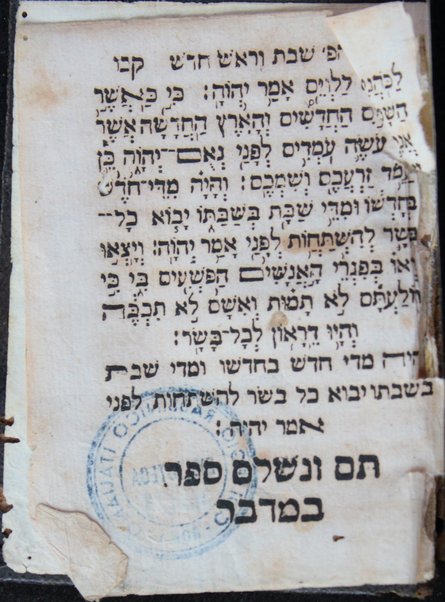 שבת וראש חדש קכו
לַכֹּהֲנִים לַלְוִיִּם אָמַר יְהוָֹה: כִּי כַאֲשֶׁר
הַשָּׁמַיִם הַחֲדָשִׁים וְהָאָרֶץ הַחֲדָשָׁה אֲשֶׁר
אֲנִי עֹשֶׂה עֹמְדִים לְפָנַי נְאֻם־יְהוָֹה כֵּן
יַעֲמֹד זַרְעֲכֶם וְשִׁמְכֶם: וְהָיָה מִדֵּי־חֹדֶשׁ
בְּחָדְשׁוֹ וּמִדֵּי שַׁבָּת בְּשַׁבַּתּוֹ יָבוֹא כָל־
בָּשָׂר לְהִשְׁתַּחֲוֹת לְפָנַי אָמַר יְהוָֹה: וְיָצְאוּ
וְרָאוּ בְּפִגְרֵי הָאֲנָשִׁים הַפֹּשְׁעִים בִּי כִּי
תוֹלַעְתָּם לֹא תָמוּת וְאִשָּׁם לֹא תִכְבֶּה
וְהָיוּ דֵרָאוֹן לְכָל־בָּשָׂר:
והיה מדי חדש בחדשו ומדי שבת
בשבתו יבוא כל בשר להשתחות לפני
אמר יהוה:
תם ונשלם ספר
במדבר